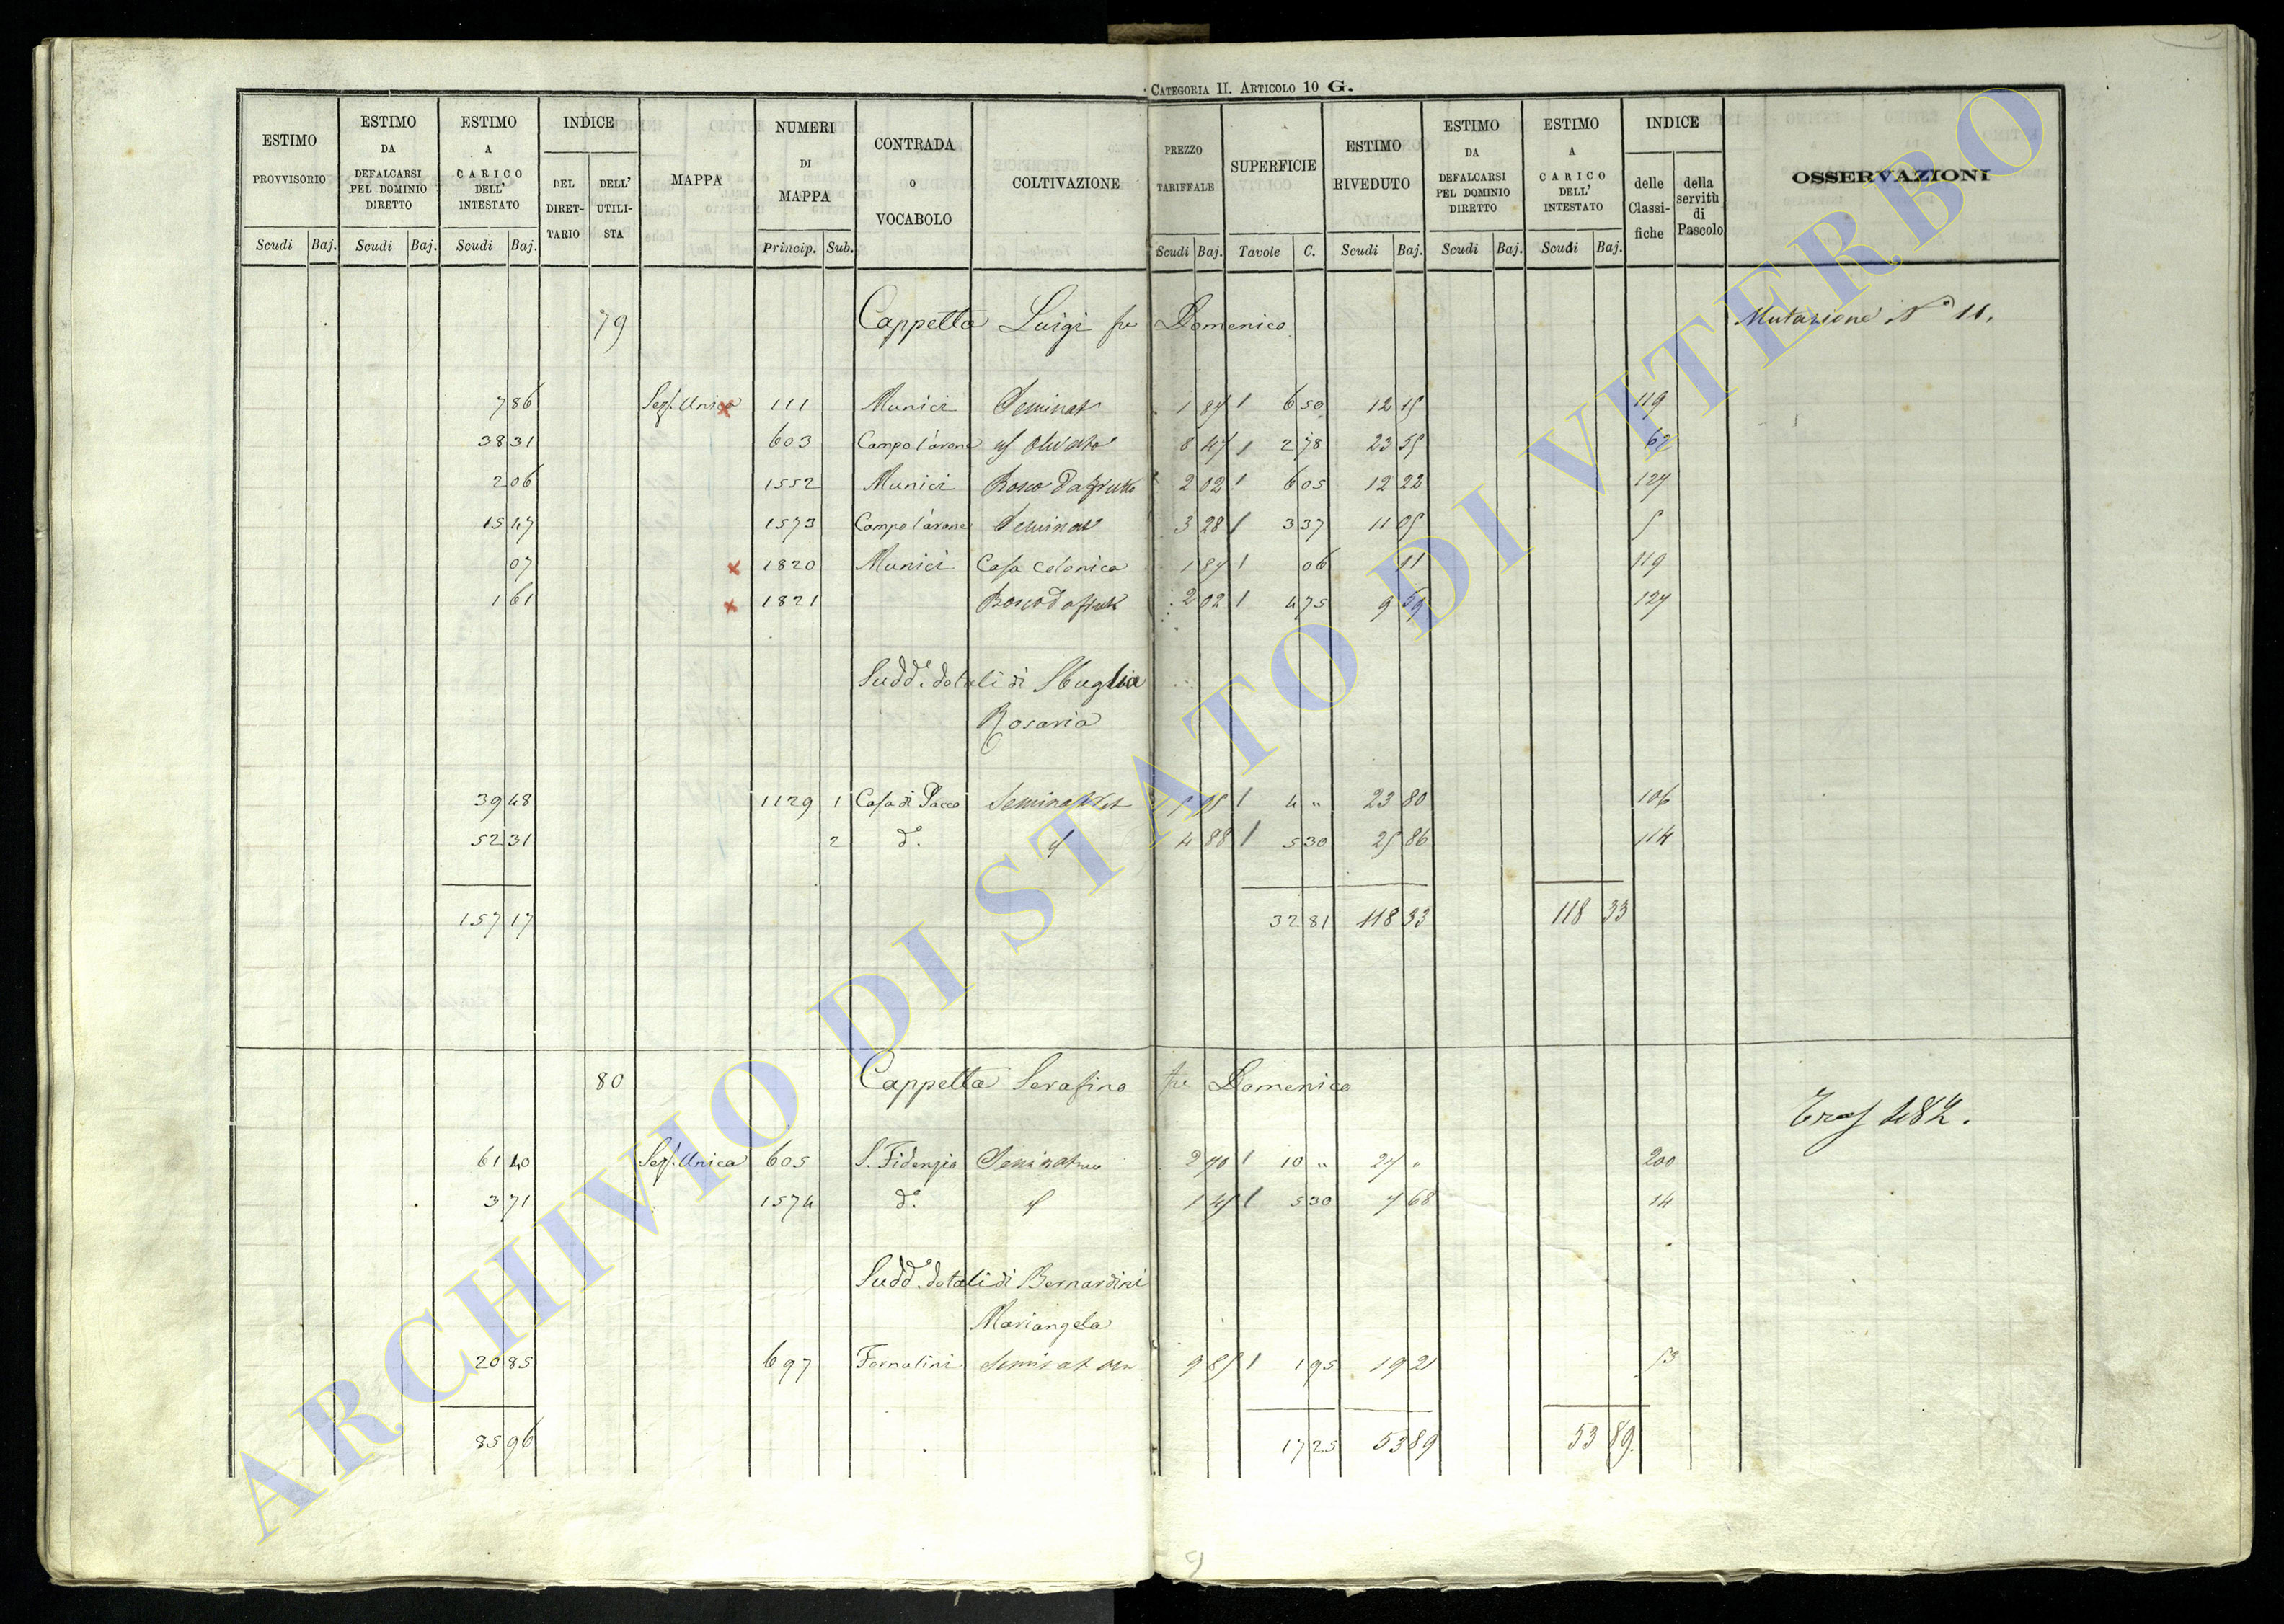 CATEGORIA II. ARTICOLO 10 G.
ESTIMO PROVVISORIO Scudi Baj.
ESTIMO DA DEFALCARSI PEL DOMINIO DIRETTO Scudi Baj.
ESTIMO A CARICO DELL' INTESTATO Scudi Baj.
INDICE DEL DIRET-TARIO DELL' UTILI-STA
MAPPA
NUMERI DI MAPPA Princip. Sub.
CONTRADA O VOCABOLO
COLTIVAZIONE
PREZZO TARIFFALE Scudi Baj.
SUPERFICIE Tavole C.
ESTIMO RIVEDUTO Scudi Baj.
ESTIMO DA DEFALCARSI PEL DOMINIO DIRETTO Scudi Baj.
ESTIMO A CARICO DELL' INTESTATO Scudi Baj.
INDICE delle Classi-fiche della servitù di Pascolo
OSSERVAZIONI
79 Cappella Luigi fu Domenico Mutazione N° 11.
7 86 Sez. Unica x 111 Munici Seminat° 1 84 6 50 12 15 119
38 31 603 Campo l'avena Olivato 8 47 2 78 23 55 62
2 06 1552 Munici Bosco da frutto 2 02 6 05 12 22 124
15 47 1573 Campo l'avena Seminat° 3 28 3 37 11 05 5
07 x 1820 Munici Casa colonica 1 84 06 11 119
1 61 x 1821 Bosco da frutt° 2 02 4 75 9 59 124
Sudd.° dotali di Sbuglia
Rosaria
39 48 1129 1 Casa di Pacco Seminat° 5 95 4 " 23 80 106
52 31 2 d.° 4 88 5 30 25 86 114
157 17 32 81 118 33 118 33
80 Cappella Serafino fu Domenico
Tras 482.
61 40 Sez. Unica 605 S. Fidenzio Seminativo 2 40 10 " 24 " 200
3 71 1574 d.° 1 45 5 30 7 68 14
Sudd.° dotali di Bernardini
Mariangela
20 85 697 Fornalini 9 85 1 95 19 21 53
85 96 17 25 53 89 53 89.
ARCHIVIO DI STATO DI VITERBO